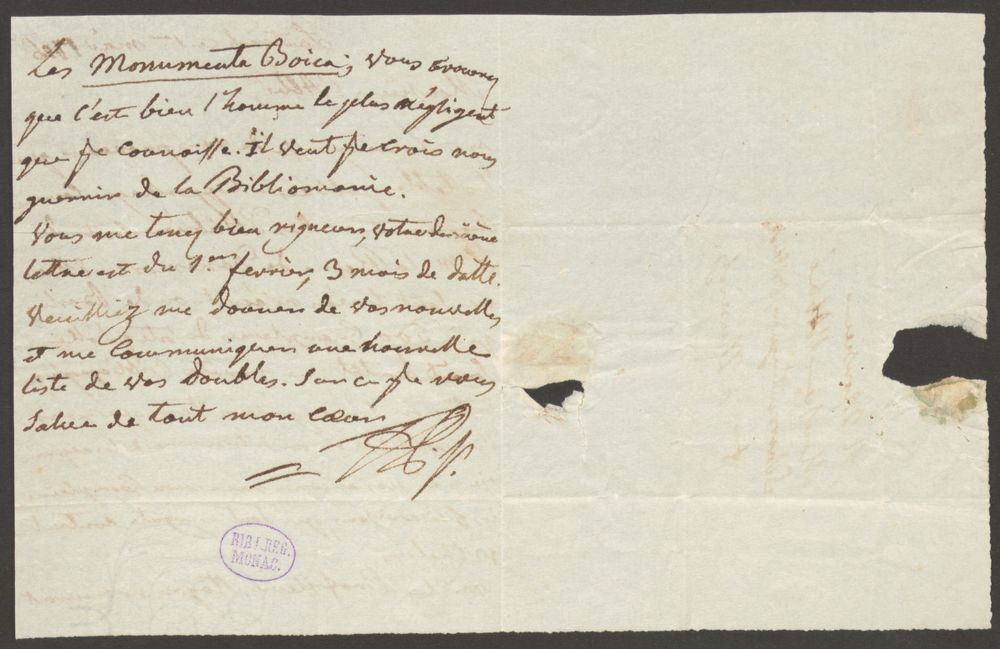 Les Monumenta Boica; vous trouverez
que c'est bien l'homme le plus négligent
que je connaisse. Il veut je crois nous
guerrir de la Bibliomanie.
Vous me tenez bien rigueur, votre dernière
lettre est du 1er fevrier, 3 mois de datte.
Veuilliez me donner de vos nouvelles
et me communiquer une nouvelle
liste de vos doubles. Sur ce je vous
salue de tout mon cœur
BIBL.REG.
MONAC.